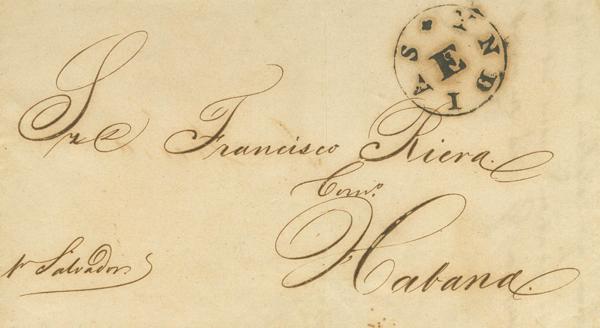 YNDIAS
E
Sr Dn Francisco Riera.
Comº.
Habana.
pr Salvador